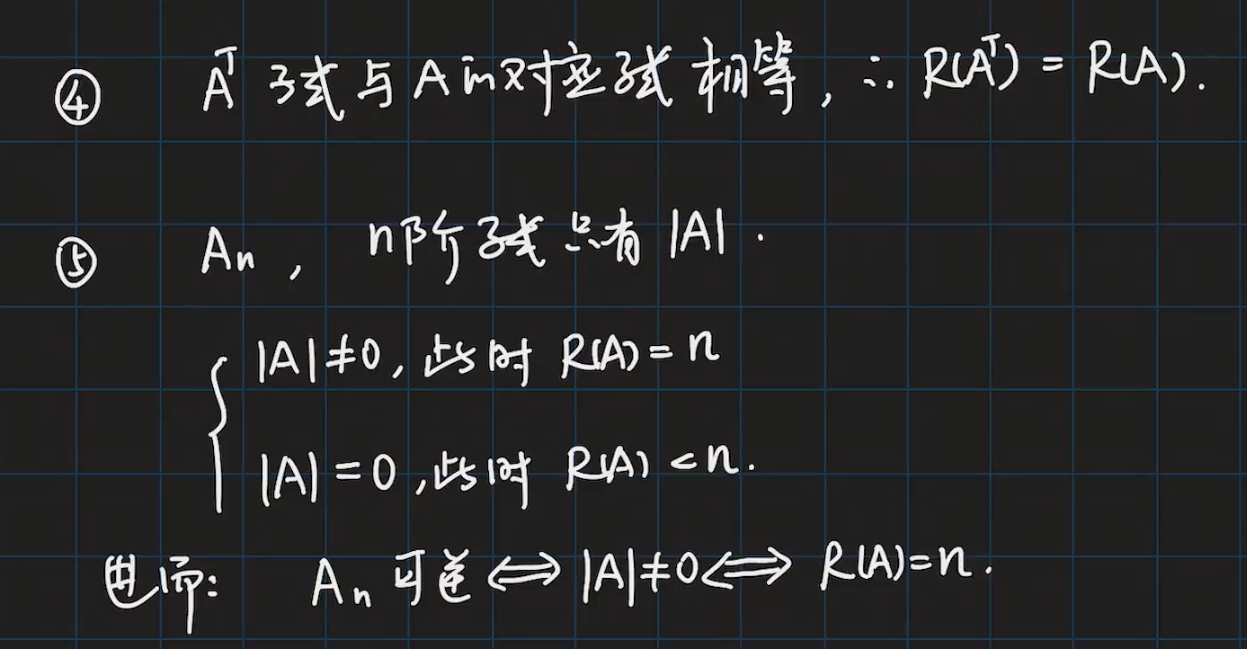 ④ Aᵀ 子式与 A的对应子式相等, ∴ R(Aᵀ) = R(A).
⑤ Aₙ, n阶子式只有 |A|.
|A|≠0, 此时 R(A) = n
|A| = 0, 此时 R(A) < n.
进而: Aₙ 可逆 ⟺ |A|≠0 ⟺ R(A)=n.